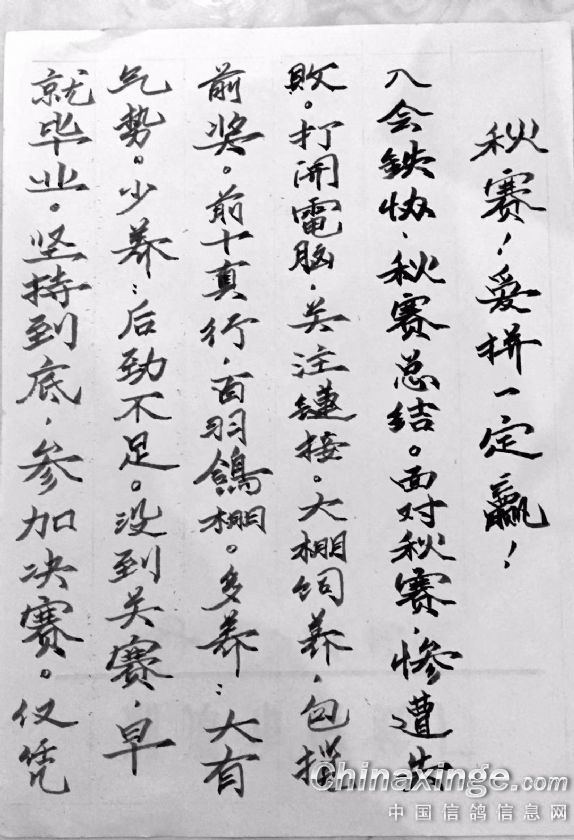 秋赛！爱拼一定赢！
入会铁协、秋赛总结。面对秋赛，惨遭失
败。打开電脑，关注鏈接。大棚饲养，包揽
前奖。前十真行，百羽鴿棚。多养：大有
气势。少养：后劲不足。没到关赛，早
就毕业。坚持到底，参加决赛。仅凭
Chinaxinge.com
中国信鸽信息网